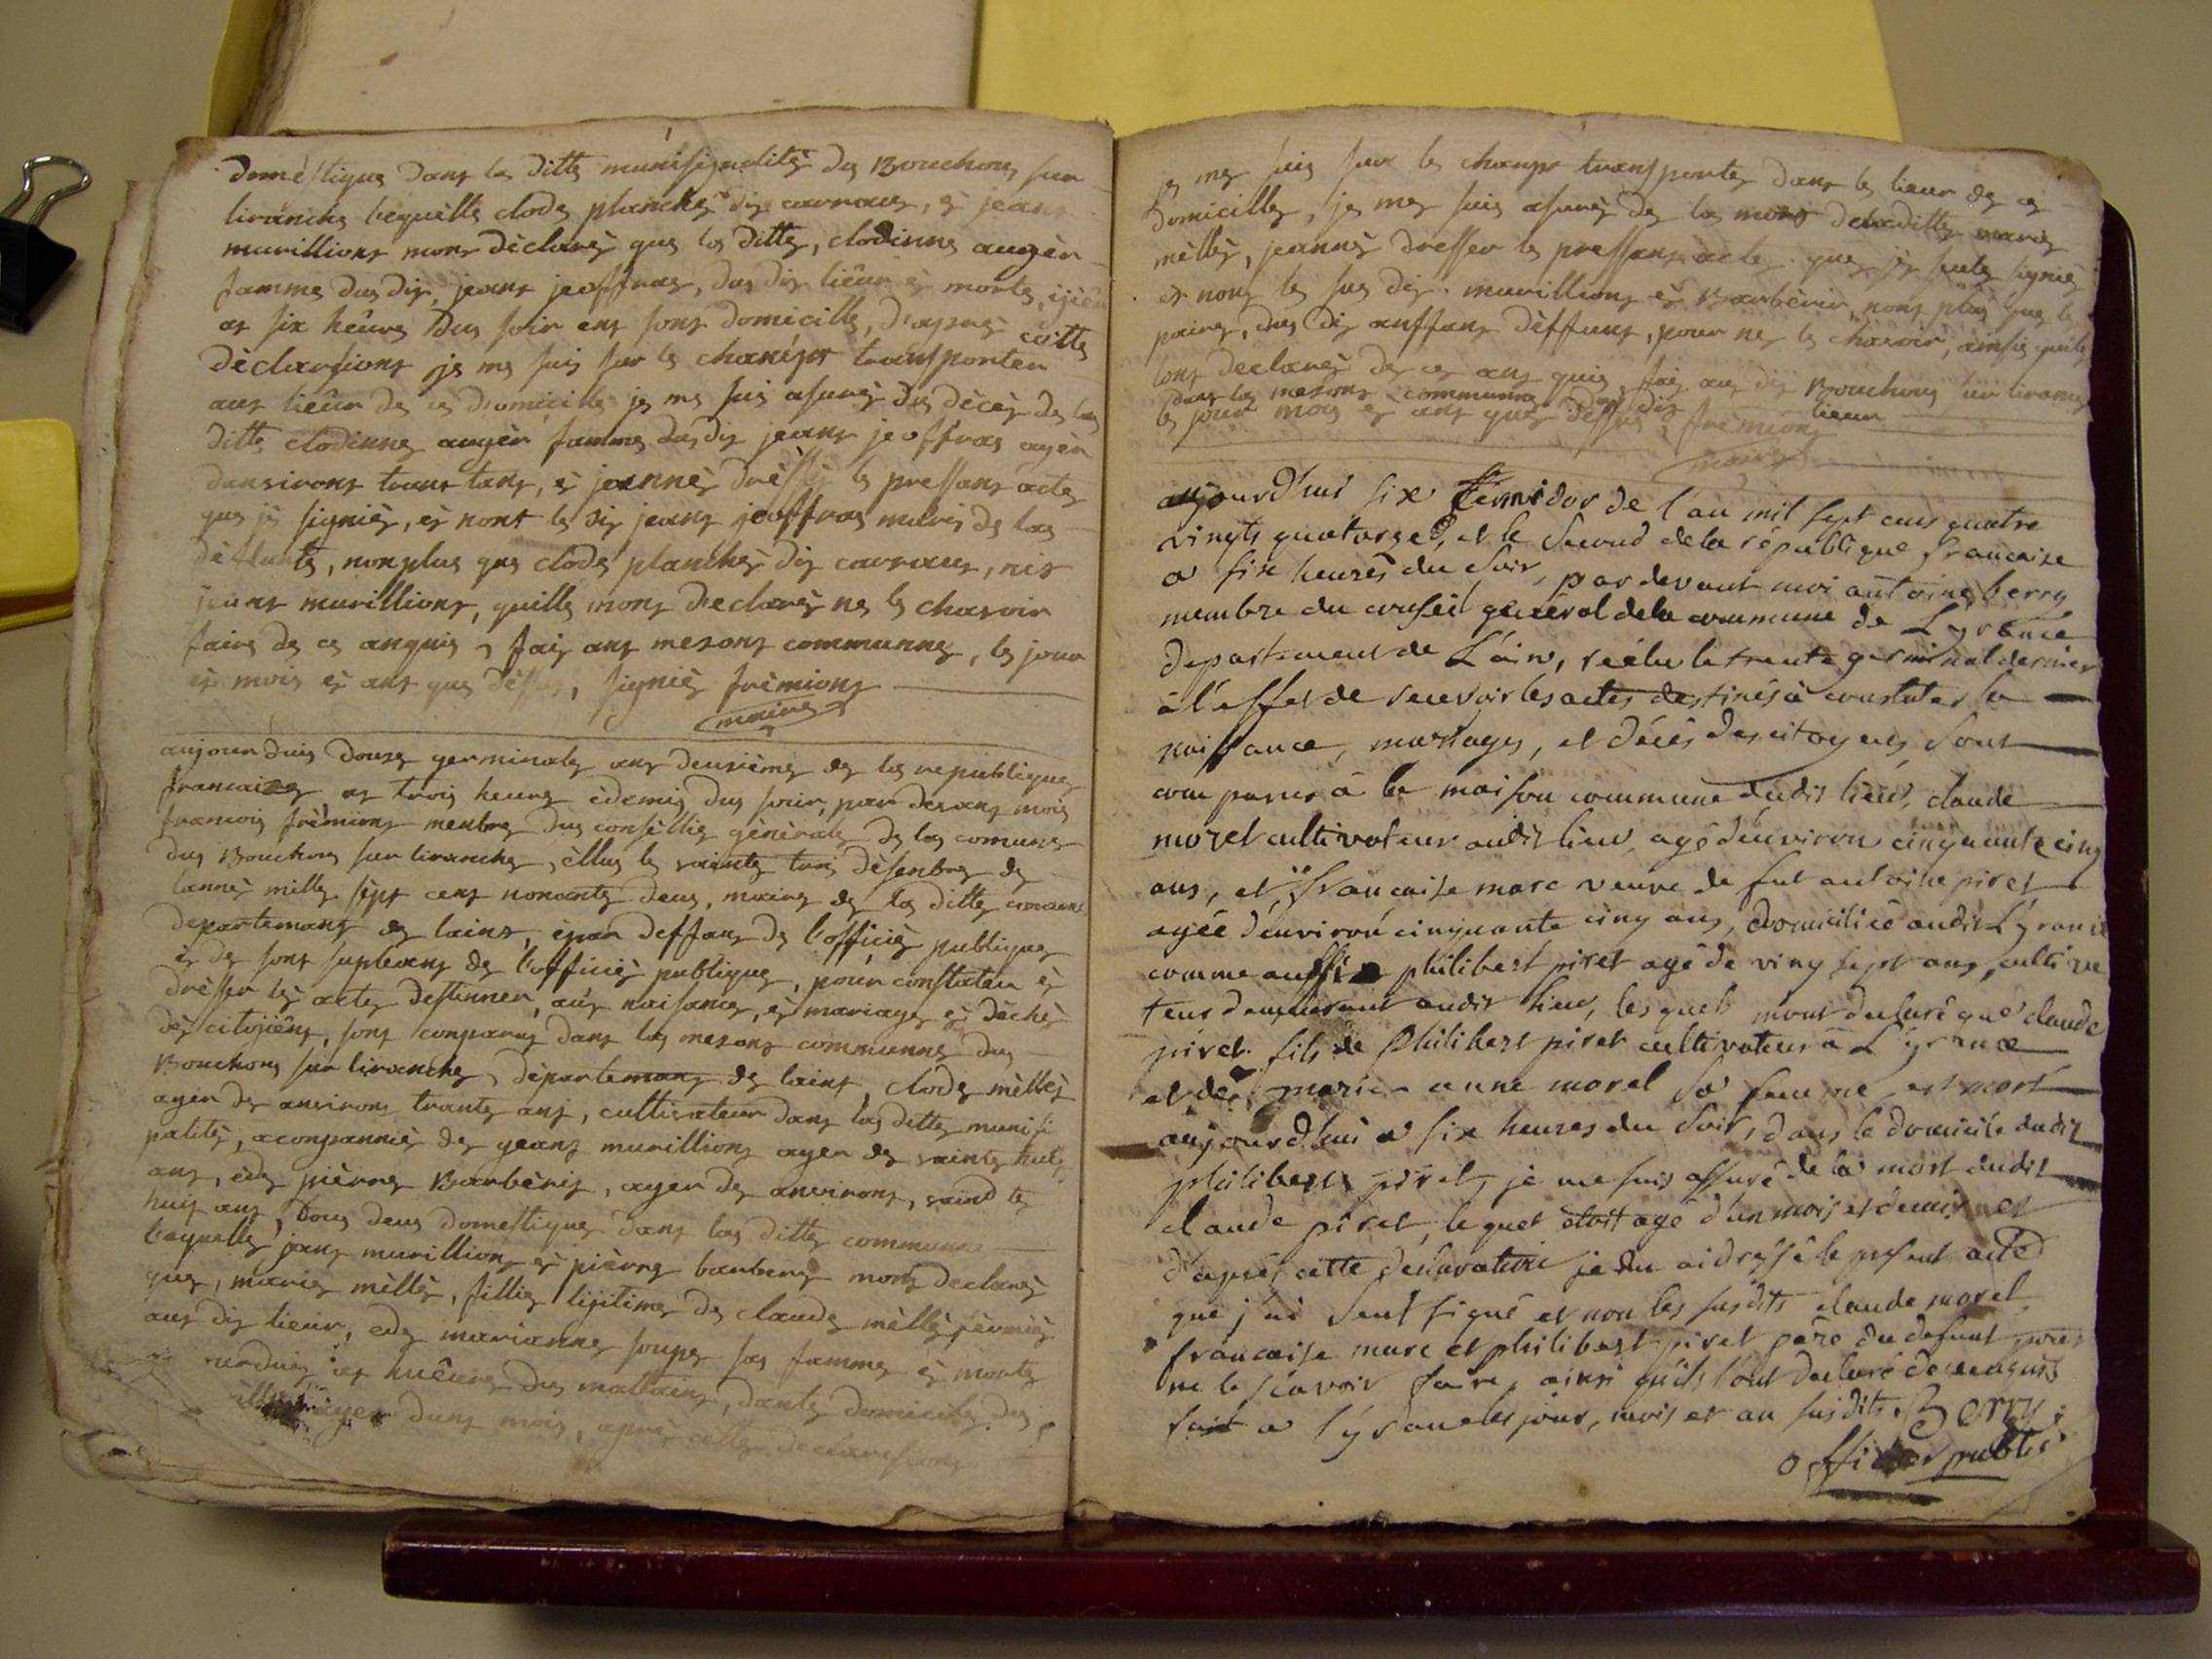 domèstique dans la ditte munisipalitè du Bouchous sur
liranche lequelle clode planche dis carraux, è jeans
murillions mons dèclarè que la ditte, clodinne augèr
famme du dis, jeans jeoffras, du dis lieur è morte,
as six heûre Dus soir ens sons domicille, d'aprè cette
dèclarsions je me suis sur le chanps transporter
aus lieûr de ce domicille je me suis asurè du dècès de las
ditte clodinne augèr famme du dis jeans jeoffras agèr
dansirons trans tans, è jeannès drèssè le pressans acte
que jè signiès, ès nons le dis jeans jeoffras maris de las
dèffunte, nonplus que clode planche dis carraux, nis
jeans murillions, quille mons dèclarè ne le chavoir
faire de ce anquis, fais ans mesons communne, le jour
ès mois ès ans que dèssus, signiès frèmions
maire
aujourduis douse germinale ans deusième de las republique
francaize as trois heure èdemis dus soir, par devans mois
francois frèmions menbre dus consèllie gènèrale de las comune
dus Bouchous sur liranche, èllus le vainte trois dèsenbre de
lannè mille sèpt cens nonante deus, maire de las ditte comune
departemans de lains, èpar deffaus de l'officiè publique
è de sons supleans de l'officiè publique, pour constater è
drèsser lès acte destinner aus naisance, è mariage è dèchè
dès citojiêns, sons conparus dans las mesons communne dus
Bouchous sur liranche, dèpartemans de lains, clode mèllès
agèr de ansirons trante ans, cultivateur dans las ditte munisi
palitè, aconpanniès de jeans murillions ager de vainte huis
ans, ède pièrre Barbèris, ager de ansirons, vaint te
huis ans, tous deus domestique dans las ditte communne
lequelle jans murillions è pièrre barberis mons declarè
que, marie mèllè, fillie lijitime de claude mèllè
aus dis lieur, ede marianne soupe sas famme è morte
as huêure dus mattains, dans le domicile de
ager duns mois, aprè cette declarsions
je me suis sur le chanps transporte dans le lieur de ce
Domicille, je me suis asurè de las mors deladitte marie
mèllè, jeannè dresser le pressans acte que jè seule signiè
et nons le sus dis murillions è Barbèris, nons plus que le
paire, dus dis anffans dèffuns, pour ne le chavoir, ainsis quils
lons declarè de ce anquis, fais aus dis Bouchous sur liranche
dans las mesons communne dus dis lieur
le jour mois è ans que dessus frèmions
maire
aujourd'hui six termidor de l'an mil sept cens quatre
vingts quatorze, et le second de la république francaise
a six heures du soir, par devant moi antoine berry
membre du conseil général de la commune de Lyrance
departement de L'ain, réélu le trente germinal dernier
à l'effet de recevoir les actes destinés à constater la
naissance, mariages, et décès des citoyens, sont
comparus à la maison commune dudit lieu, claude
morel cultivateur audit lieu, agé d'environ cinquante cinq
ans, et francaise marc veuve de fut antoine piret
agée d'environ cinquante cinq ans, domiciliée audit Lyrance
comme aussi philibert piret agé de vingt sept ans, cultiva
teur demeurant audit lieu, lesquels m'ont declaré que claude
piret fils de Philibert piret cultivateur à Lyrance
et de marie anne morel sa femme est mort
aujourd'hui a six heures du soir, dans le domicile dudit
philibert piret, je me suis assuré de la mort dudit
claude piret, lequel etoit agé d'un mois et demis et
d'après cette declaration je du aidressé le present acte
que j'ai seul signé et non les susdits claude morel
francaise marc et philibert piret père du defunt pour
ne le sçavoir faire, ainsi qu'ils l'ont declaré de ce enquis
fait a Lyrance les jour, mois et an susdits. Berry
officier public